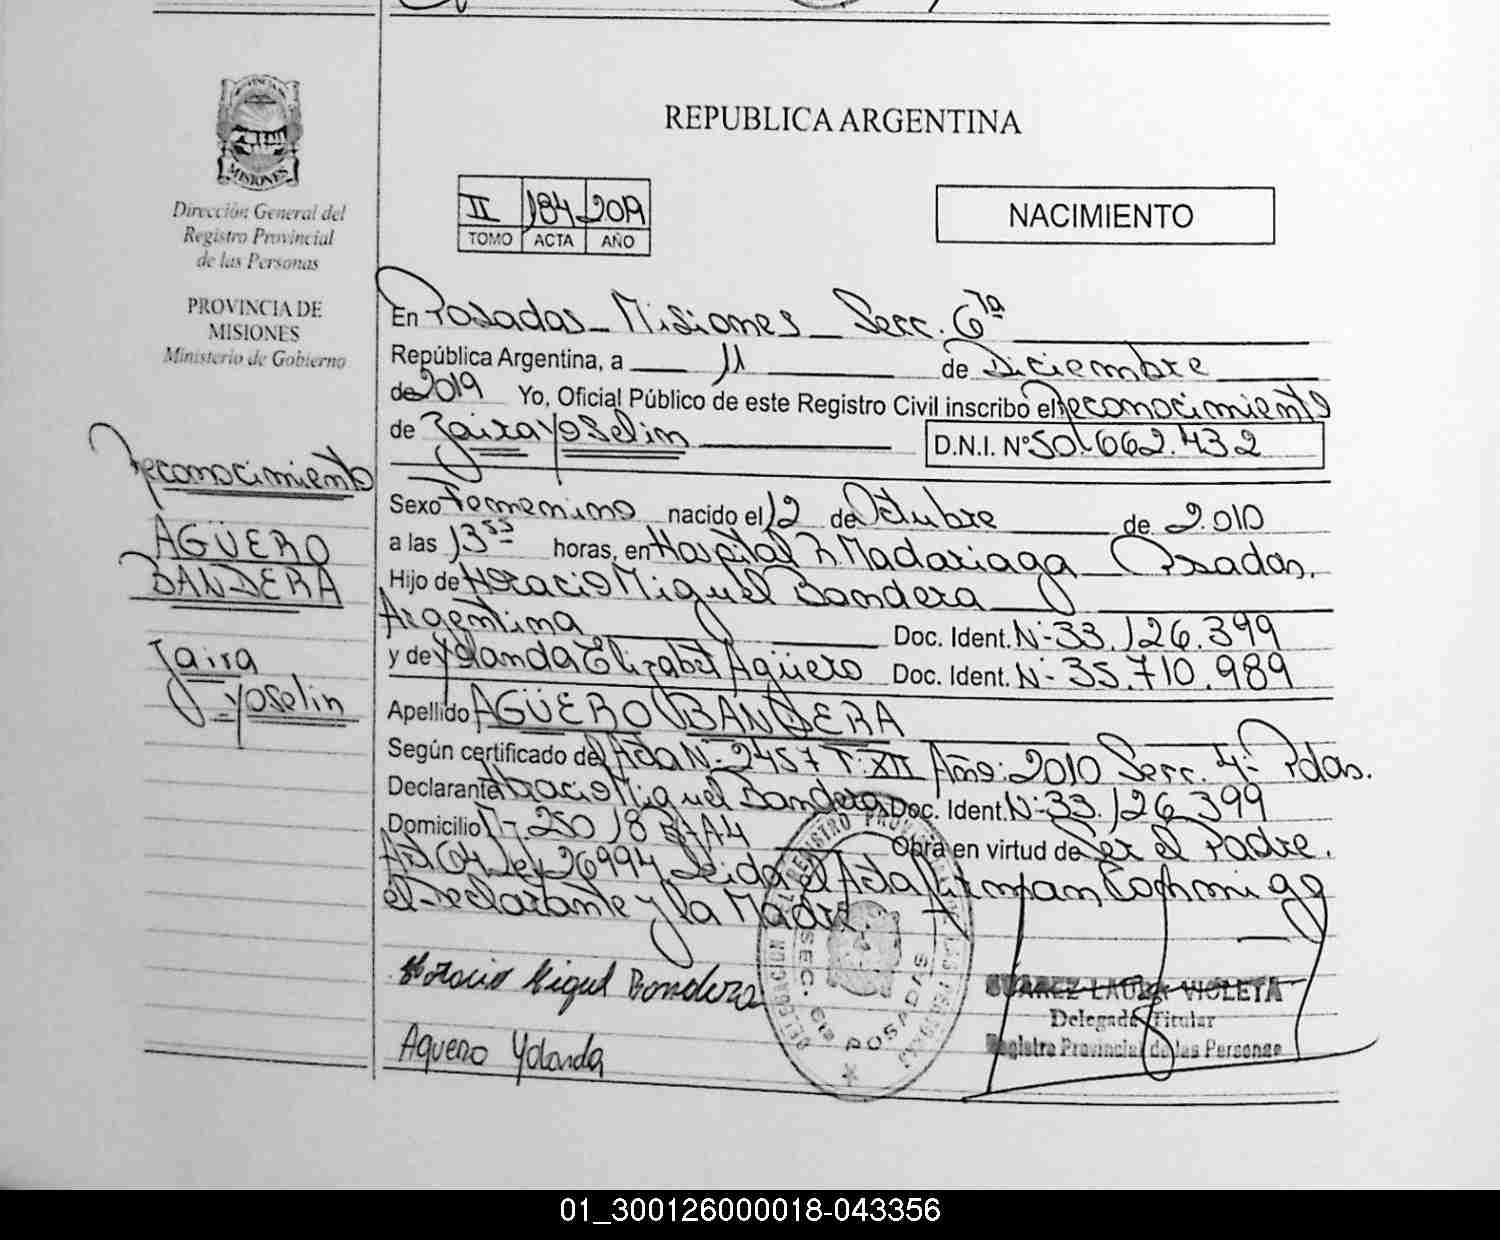 PROVINCIA DE
MISIONES
Dirección General del
Registro Provincial
de las Personas
PROVINCIA DE
MISIONES
Ministerio de Gobierno
Reconocimiento
AGÜERO
BANDERA
Zaira
Yoselin
REPUBLICA ARGENTINA
II 184 2019
TOMO ACTA AÑO
NACIMIENTO
En Posadas - Misiones - Secc. 6ta
República Argentina, a 11 de Diciembre
de 2019 Yo, Oficial Público de este Registro Civil inscribo el Reconocimiento
de Zaira Yoselin D.N.I. Nº 50.662.432
Sexo Femenino nacido el 12 de Octubre de 2.010
a las 13 55 horas, en Hospital R. Madariaga Posadas.
Hijo de Horacio Miguel Bandera
Argentina Doc. Ident. N- 33.126.399
y de Yolanda Elizabet Agüero Doc. Ident. N- 35.710.989
Apellido AGÜERO BANDERA
Según certificado de Acta N- 2457 T: XII Año: 2010 Secc. 4- Pdas.
Declarante Horacio Miguel Bandera Doc. Ident. N- 33.126.399
Domicilio 250 18 Obra en virtud de Ser el Padre.
Art 64 Ley 26994 Leida el Acta Firman Conmigo
el Declarante y la Madre.
Horacio Miguel Bandera
Aguero Yolanda
DELEGACION DEL REGISTRO PROVINCIAL DE LAS PERSONAS
SEC. 6ta POSADAS
SUAREZ LAURA VIOLETA
Delegada Titular
Registro Provincial de las Personas
01_300126000018-043356